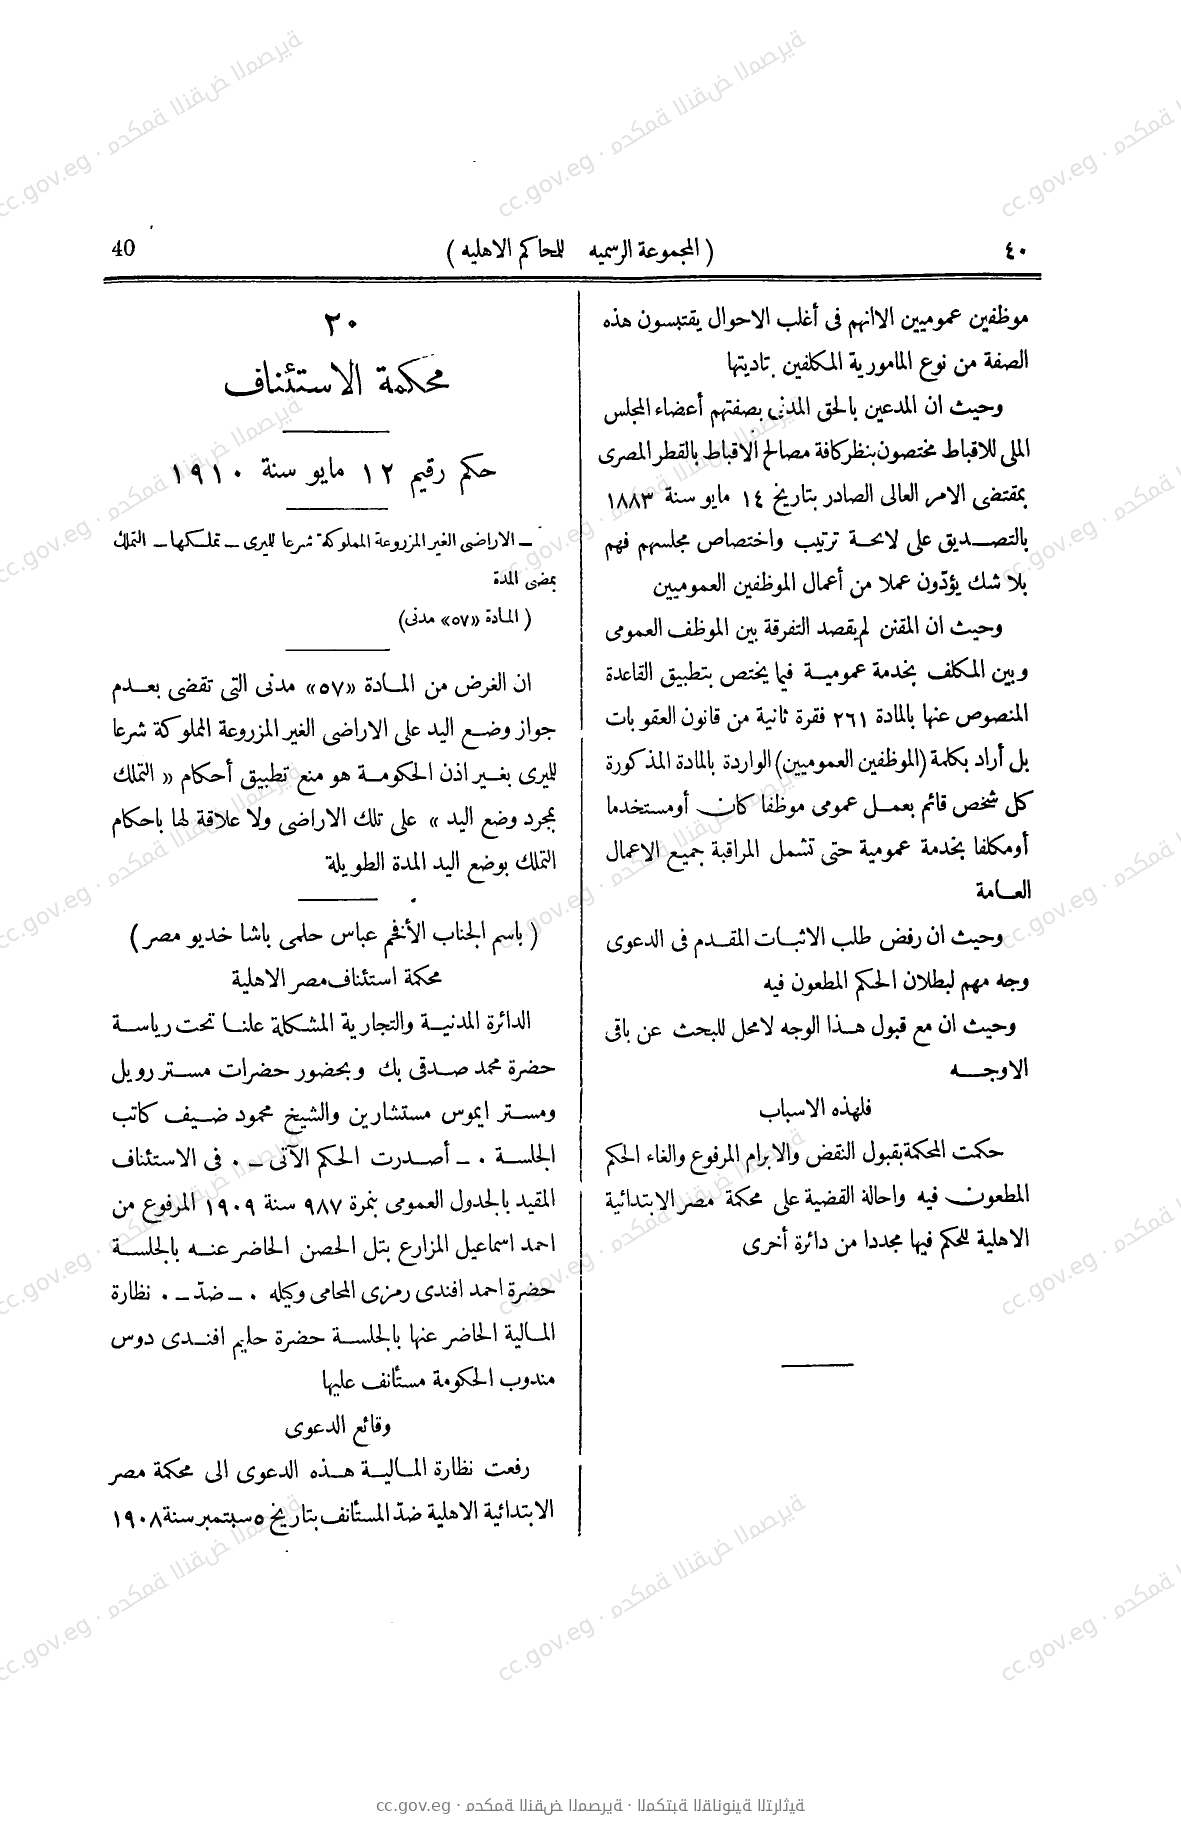 ٤٠
( المجموعة الرسميه للمحاكم الاهليه )
40
موظفين عموميين الاانهم فى أغلب الاحوال يقتبسون هذه
الصفة من نوع المامورية المكلفين بتاديتها
وحيث ان المدعين بالحق المدنى بصفتهم أعضاء المجلس
الملى للاقباط مختصون بنظركافة مصالح الاقباط بالقطر المصرى
بمقتضى الامر العالى الصادر بتاريخ ١٤ مايو سنة ١٨٨٣
بالتصديق على لائحة ترتيب واختصاص مجلسهم فهم
بلا شك يؤدّون عملا من أعمال الموظفين العموميين
وحيث ان المقنن لم يقصد التفرقة بين الموظف العمومى
وبين المكلف بخدمة عمومية فيما يختص بتطبيق القاعدة
المنصوص عنها بالمادة ٢٦١ فقرة ثانية من قانون العقوبات
بل أراد بكلمة (الموظفين العموميين) الواردة بالمادة المذكورة
كل شخص قائم بعمل عمومى موظفا كان أومستخدما
أومكلفا بخدمة عمومية حتى تشمل المراقبة جميع الاعمال
العامة
وحيث ان رفض طلب الاثبات المقدم فى الدعوى
وجه مهم لبطلان الحكم المطعون فيه
وحيث ان مع قبول هذا الوجه لامحل للبحث عن باقى
الاوجه
فلهذه الاسباب
حكمت المحكمة بقبول النقض والابرام المرفوع والغاء الحكم
المطعون فيه واحالة القضية على محكمة مصر الابتدائية
الاهلية للحكم فيها مجددا من دائرة أخرى
٢٠
محكمة الاستئناف
حكم رقيم ١٢ مايو سنة ١٩١٠
ـ الاراضى الغير المزروعة المملوكة شرعا لليرى ـ تملكها ـ التملك
بمضى المدة
( المادة «٥٧» مدنى)
ان الغرض من المادة «٥٧» مدنى التى تقضى بعدم
جواز وضع اليد على الاراضى الغير المزروعة المملوكة شرعا
لليرى بغير اذن الحكومة هو منع تطبيق أحكام « التملك
بمجرد وضع اليد » على تلك الاراضى ولا علاقة لها باحكام
التملك بوضع اليد المدة الطويلة
( باسم الجناب الأفخم عباس حلمى باشا خديو مصر )
محكمة استئناف مصر الاهلية
الدائرة المدنية والتجارية المشكلة علنا تحت رياسة
حضرة محمد صدقى بك وبحضور حضرات مستر رويل
ومستر ايموس مستشارين والشيخ محمود ضيف كاتب
الجلسة ٠ ـ أصدرت الحكم الآتى ـ ٠ فى الاستئناف
المقيد بالجدول العمومى بنمرة ٩٨٧ سنة ١٩٠٩ المرفوع من
احمد اسماعيل المزارع بتل الحصن الحاضر عنه بالجلسة
حضرة احمد افندى رمزى المحامى وكيله ٠ ـ ضدّ ـ ٠ نظارة
المالية الحاضر عنها بالجلسة حضرة حليم افندى دوس
مندوب الحكومة مستأنف عليها
وقائع الدعوى
رفعت نظارة المالية هذه الدعوى الى محكمة مصر
الابتدائية الاهلية ضدّ المستأنف بتاريخ ٥ سبتمبر سنة ١٩٠٨
cc.gov.eg · محكمة النقض المصرية · المكتبة القانونية التراثية